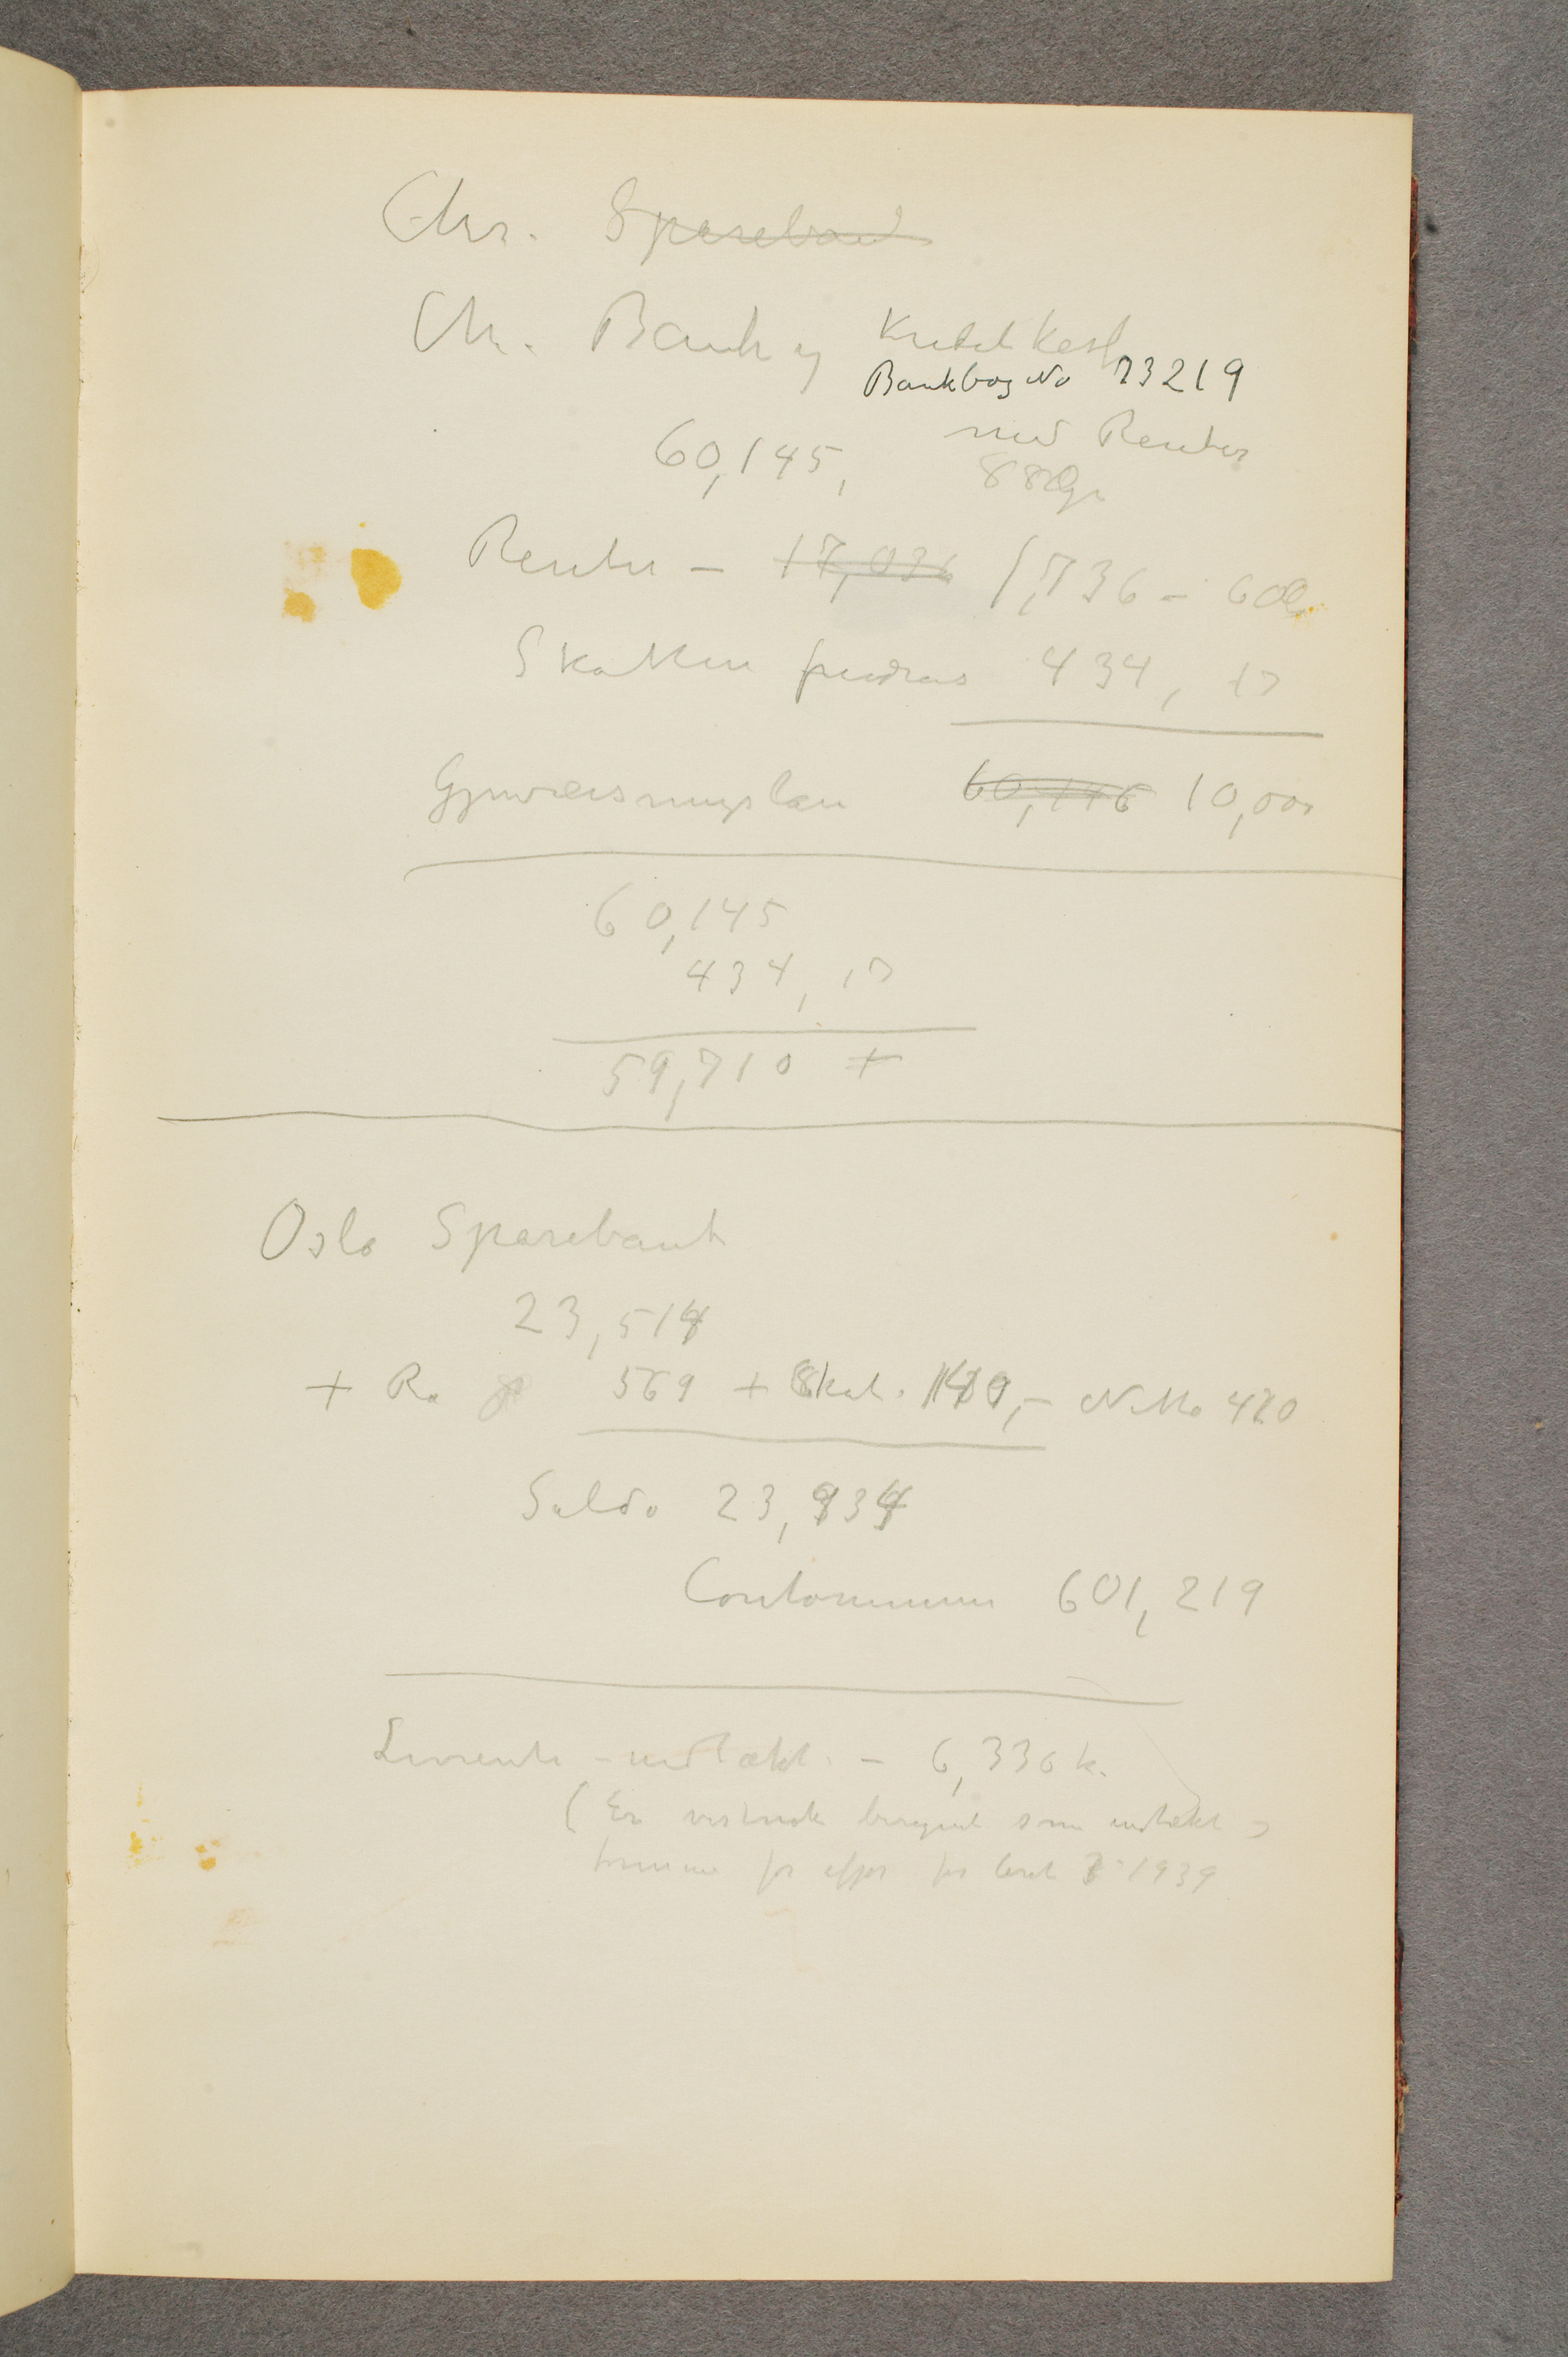 Chr. Sparebank
Chr. Bank og Kredit Kasse
Bankbog No 73219
med Renter
60,145, 88 Ør
Renter – 17,036 1,736 – 60
Skatten fradras 434, 17
Gjenreisningslån 60,146 10,000
60,145
434, 17
59,710 +
Oslo Sparebank
23,514
+ R. 569 + Skat. 149,– Netto 420
Saldo 23,934
Contonummer 601,219
Livrente – indtækt. – 6,336 k.
(Er vistnok beregnet som indtækt
for året 1939